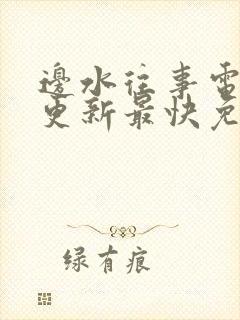 邊水往事電
更新最快免
绿有痕